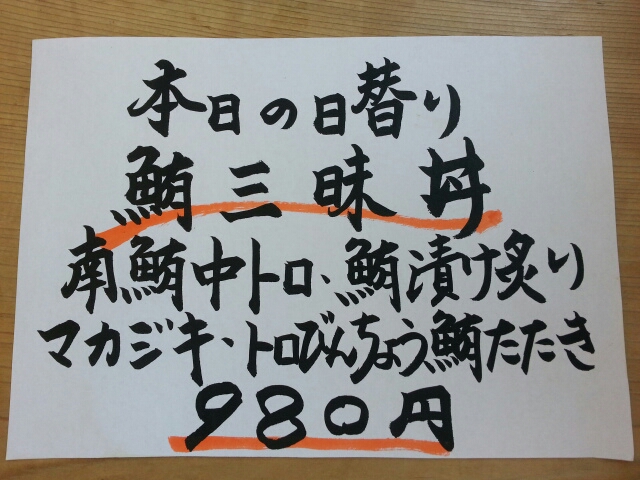 本日の日替り
鮪三昧丼
南鮪中トロ、鮪漬け炙り
マカジキ、トロびんちょう鮪たたき
980円